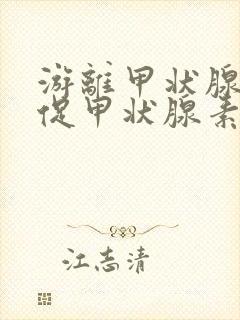 游離甲状腺
促甲状腺素
江志清